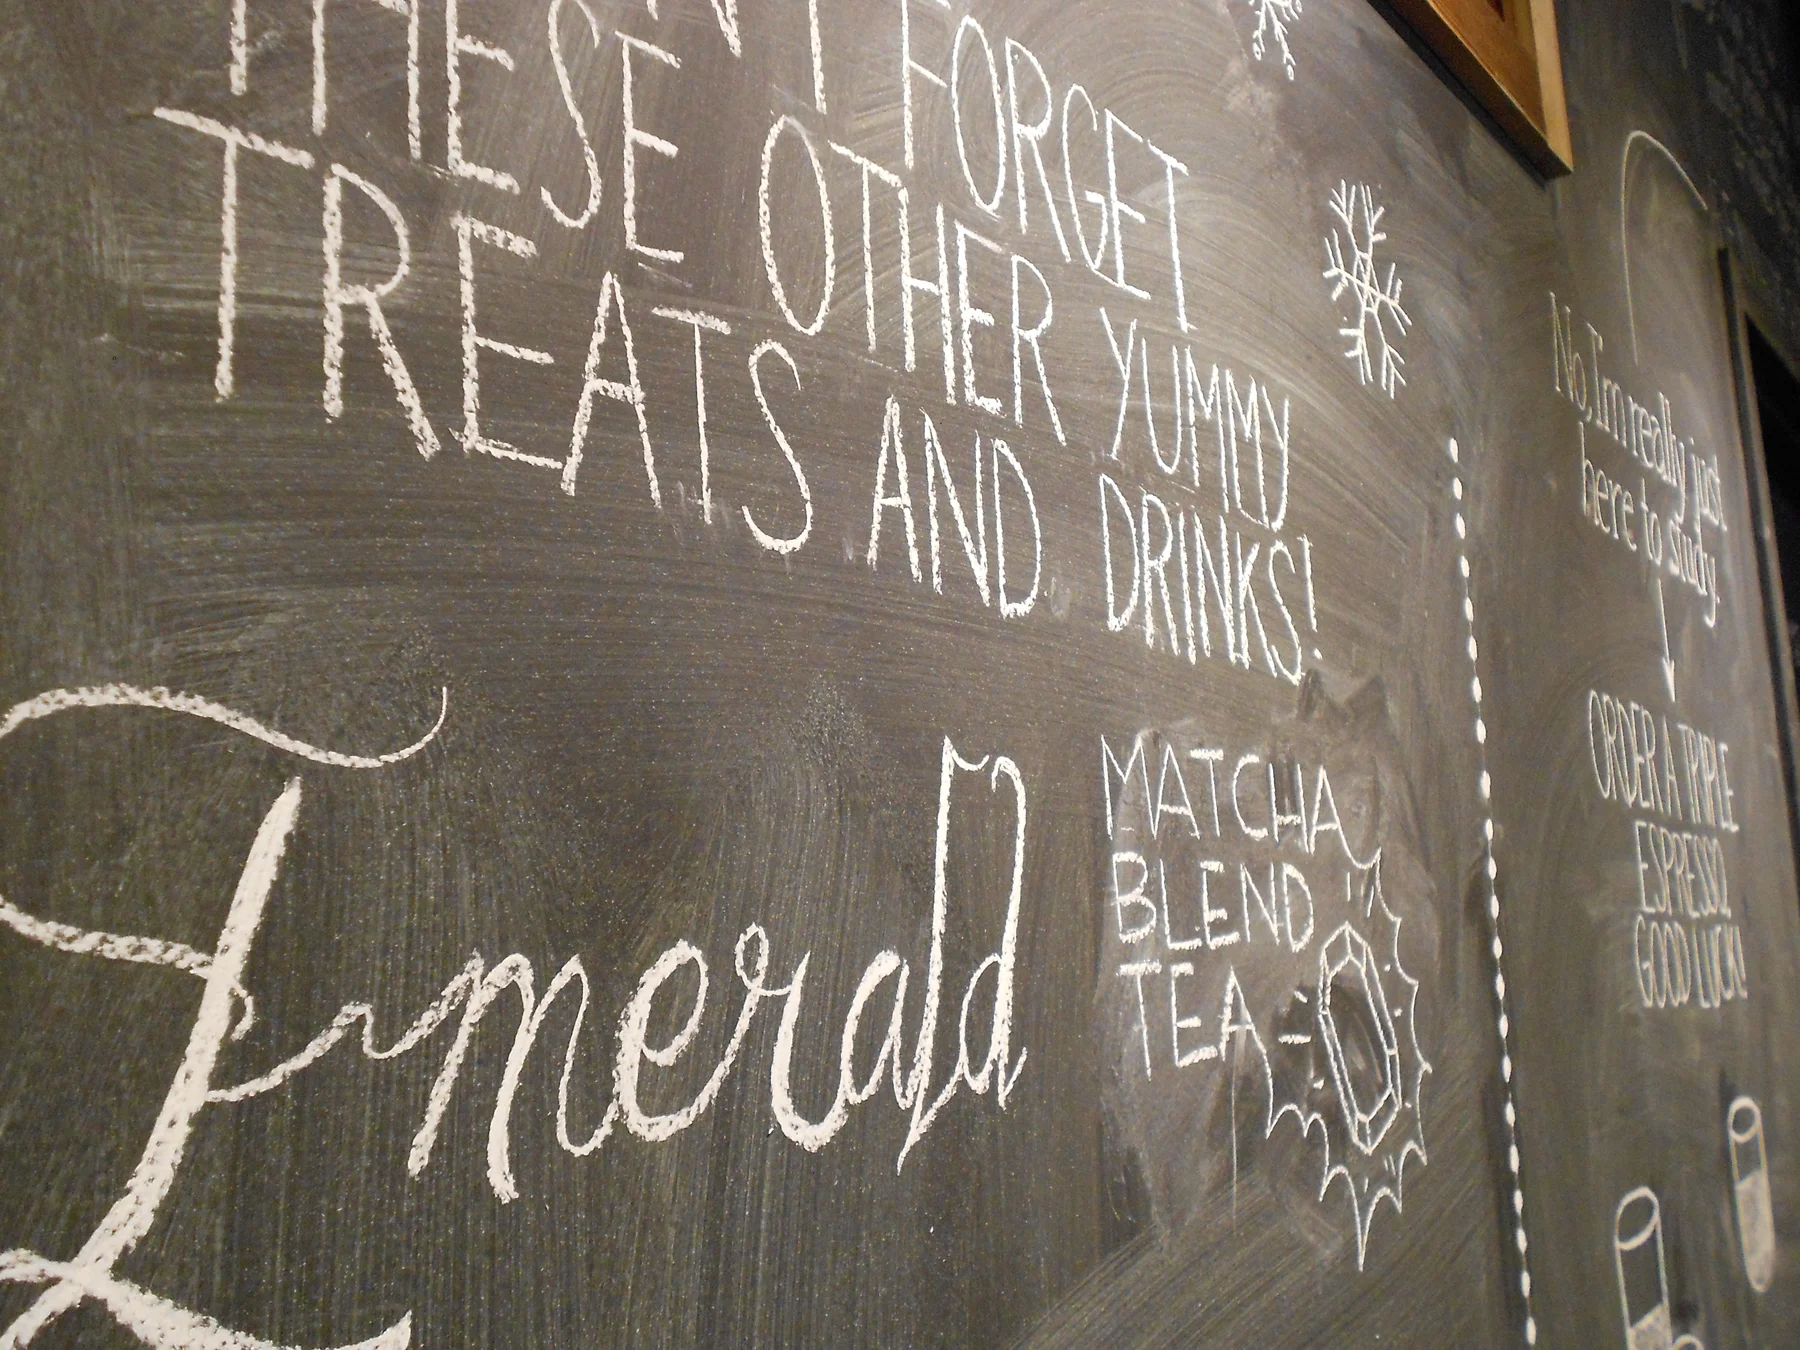 FORGET
THESE OTHER YUMMY
TREATS AND DRINKS!
Emerald
MATCHA
BLEND
TEA
No, I'm really just
here to study.
ORDER A TRIPLE
ESPRESSO.
GOOD LUCK!